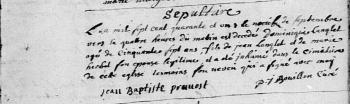 Sepulture
L'an mil sept cent quarante et un le neuf de Septembre
vers la quatre heures du matin est decedé Dominique Longlet
agé de Cinquante sept ans fils de jean Longlet et de marie
hechet son epouse legitimes et a été inhumé dans le Cimetiere
de cette eglise temoins son neveu qui a signé avec moy
jean Baptiste pruvost P. J. Bouillon Curé